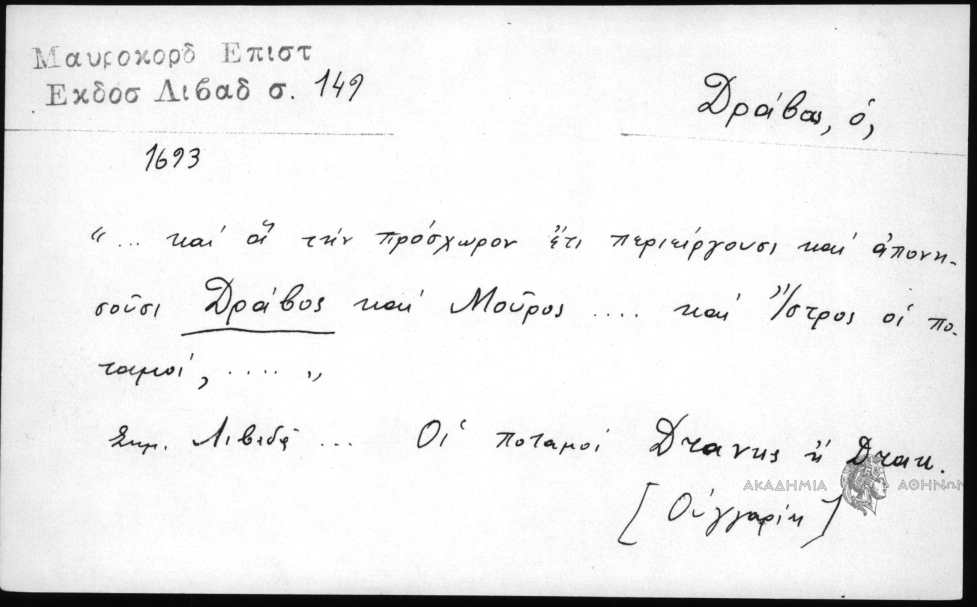 Μαυροκορδ Επιστ
Εκδοσ Λιβαδ σ. 149
Δράβος, ὁ,
1693
“... καὶ οἳ τὴν πρόσχωρον ἔτι περιείργουσι καὶ ἀπονη-
σοῦσι Δράβος καὶ Μοῦρος .... καὶ Ἴστρος οἱ πο-
ταμοί, ..... „
Σημ. Λιβαδᾶ ... Οἱ ποταμοί
ΑΚΑΔΗΜΙΑ ΑΘΗΝΩΝ
[Οὑγγαρία]